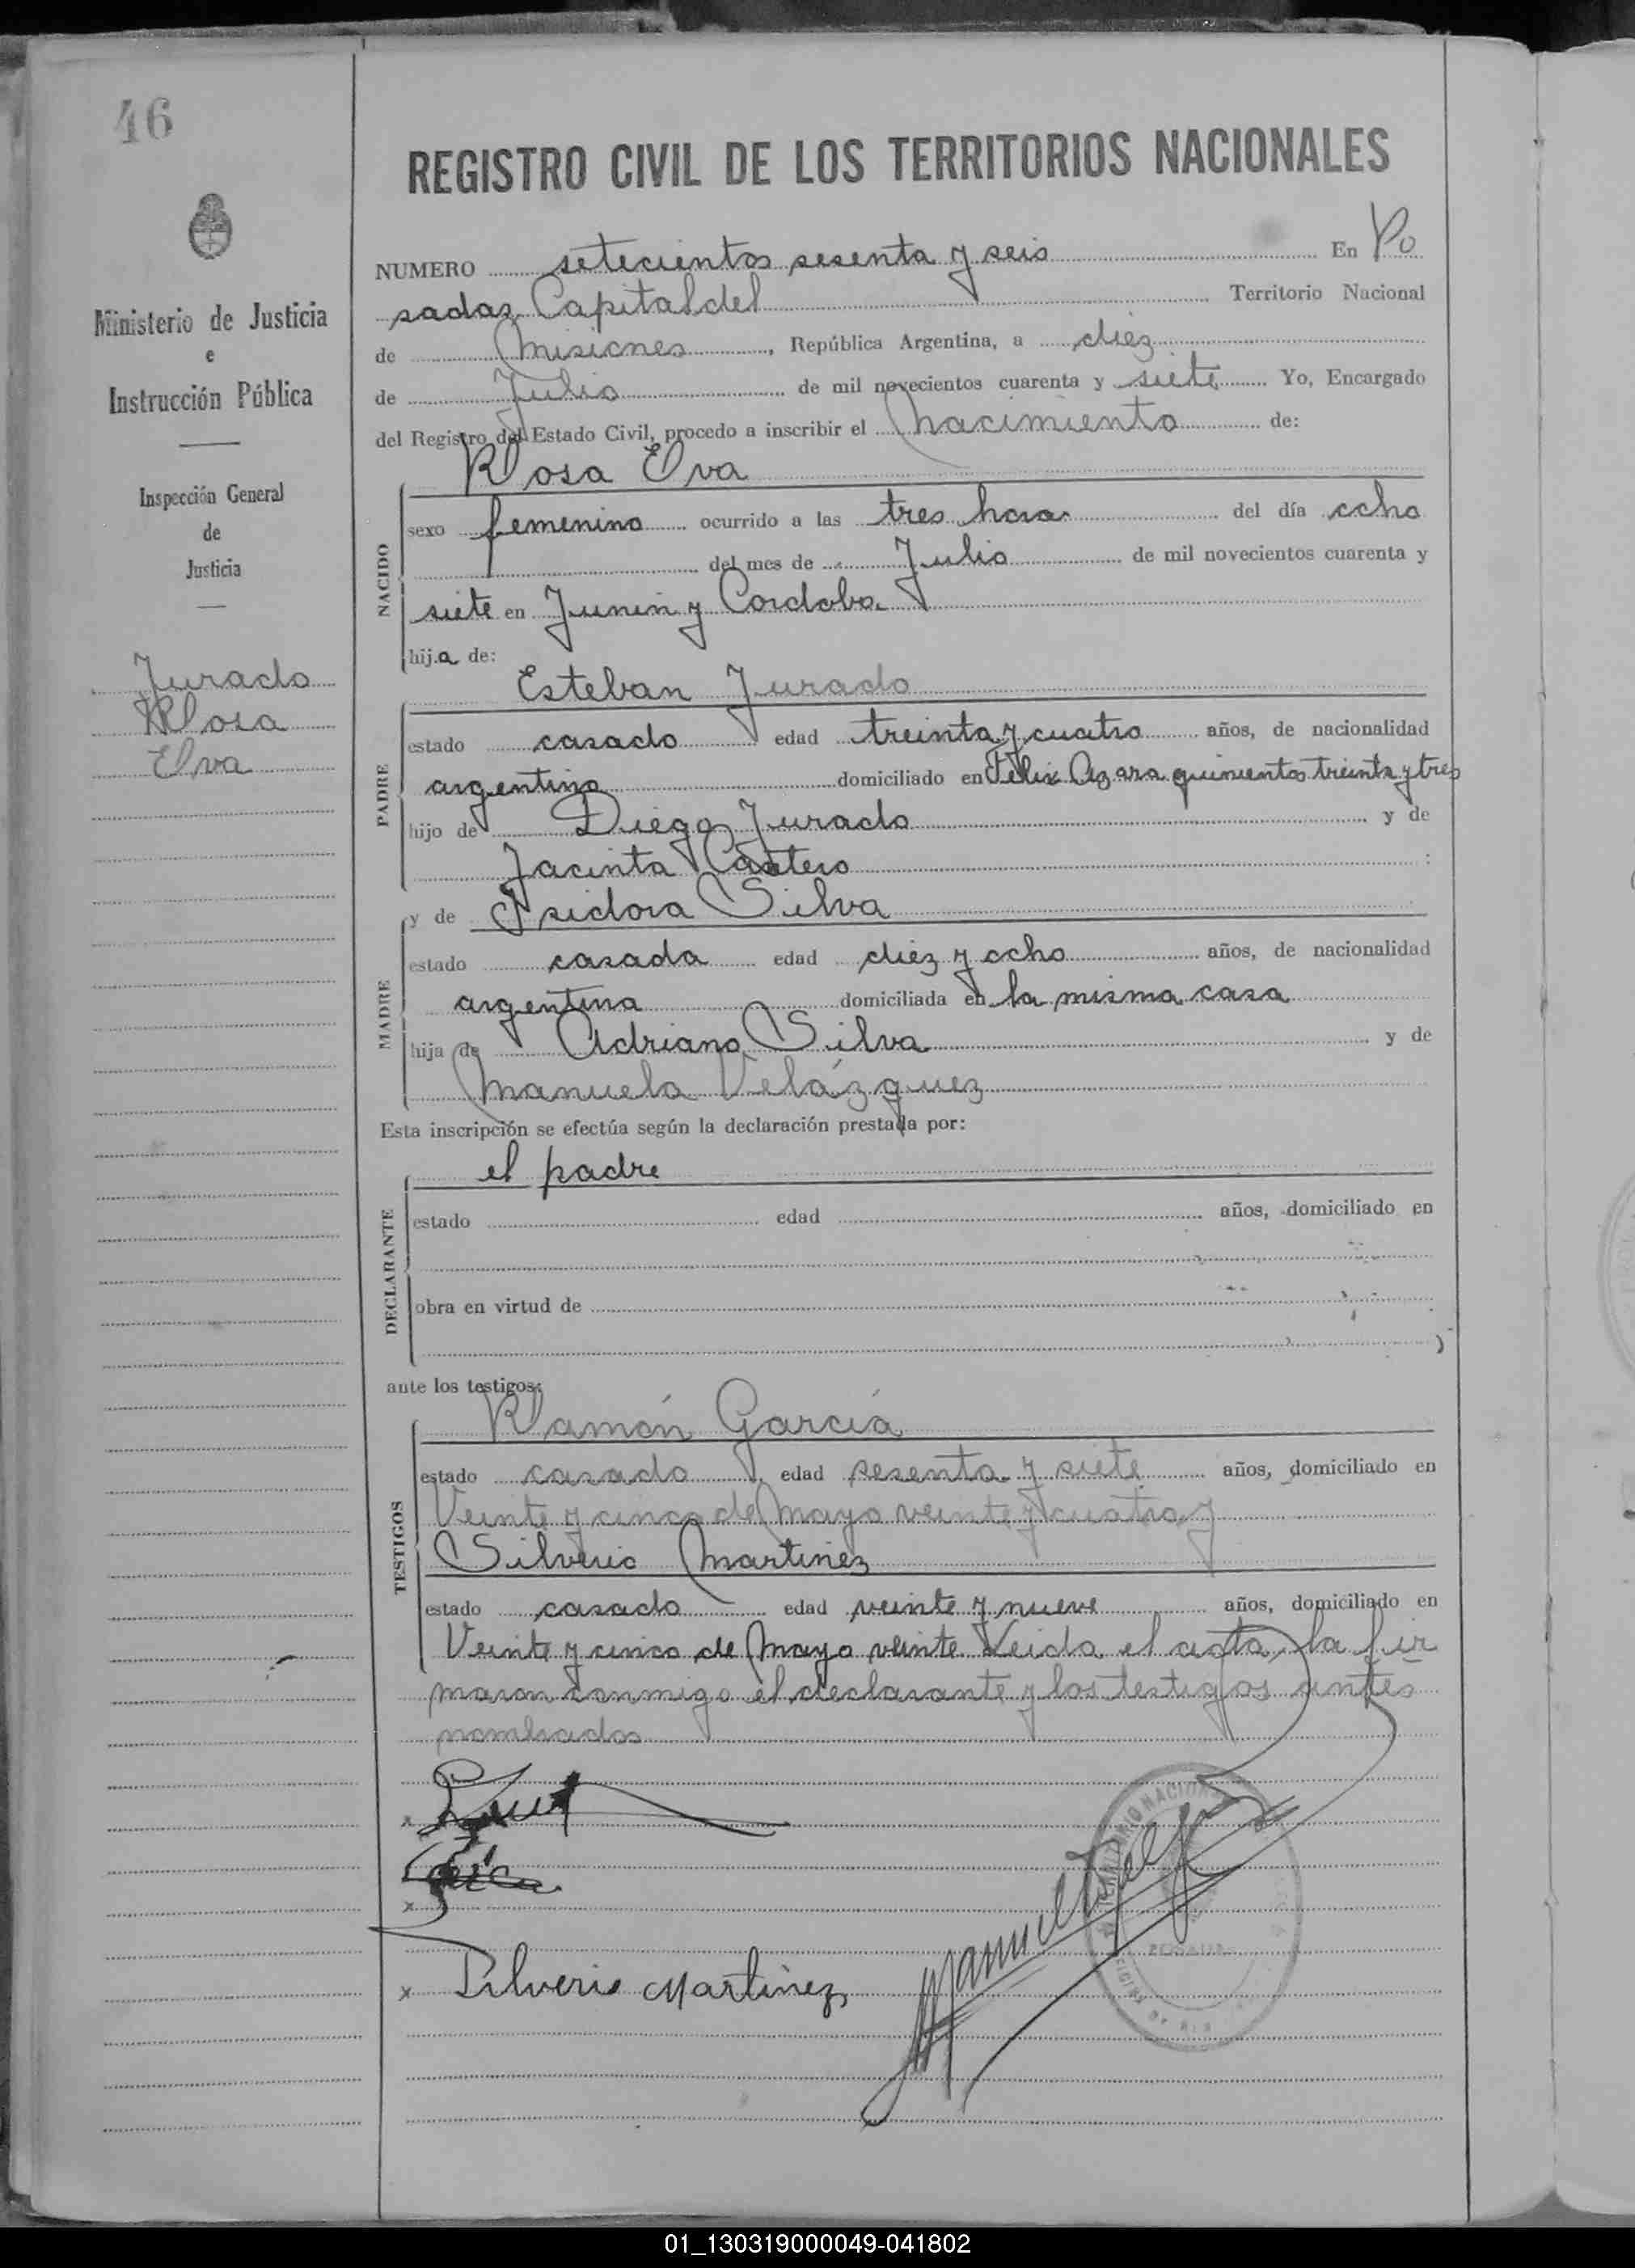 46
Ministerio de Justicia
e
Instrucción Pública
Inspección General
de
Justicia
Jurado
Rosa
Elva
REGISTRO CIVIL DE LOS TERRITORIOS NACIONALES
NUMERO setecientos sesenta y seis En Po
sadas, Capital del Territorio Nacional
de Misiones, República Argentina, a diez
de Julio de mil novecientos cuarenta y siete Yo, Encargado
del Registro del Estado Civil, procedo a inscribir el nacimiento de:
Rosa Elva
NACIDO
sexo femenino ocurrido a las tres horas del día ocho
del mes de Julio de mil novecientos cuarenta y
siete en Junin y Cordoba
hija de:
Esteban Jurado
PADRE
estado casado edad treinta y cuatro años, de nacionalidad
argentino domiciliado en Felix Azara quinientos treinta y tres
hijo de Diego Jurado y de
Jacinta :
y de Isidora Silva
MADRE
estado casada edad diez y ocho años, de nacionalidad
argentina domiciliada en la misma casa
hija de Adriano Silva y de
Manuela Velázquez
Esta inscripción se efectúa según la declaración prestada por:
el padre
DECLARANTE
estado edad años, domiciliado en
obra en virtud de
ante los testigos:
Ramón García
TESTIGOS
estado casado edad sesenta y siete años, domiciliado en
Veinte y cinco de Mayo veinte y cuatro y
Silverio Martinez
estado casado edad veinte y nueve años, domiciliado en
Veinte y cinco de Mayo veinte. Leida el acta, la fir
maron conmigo el declarante y los testigos antes
nombrados
x
x
x Silverio Martinez
Manuel
01_130319000049-041802